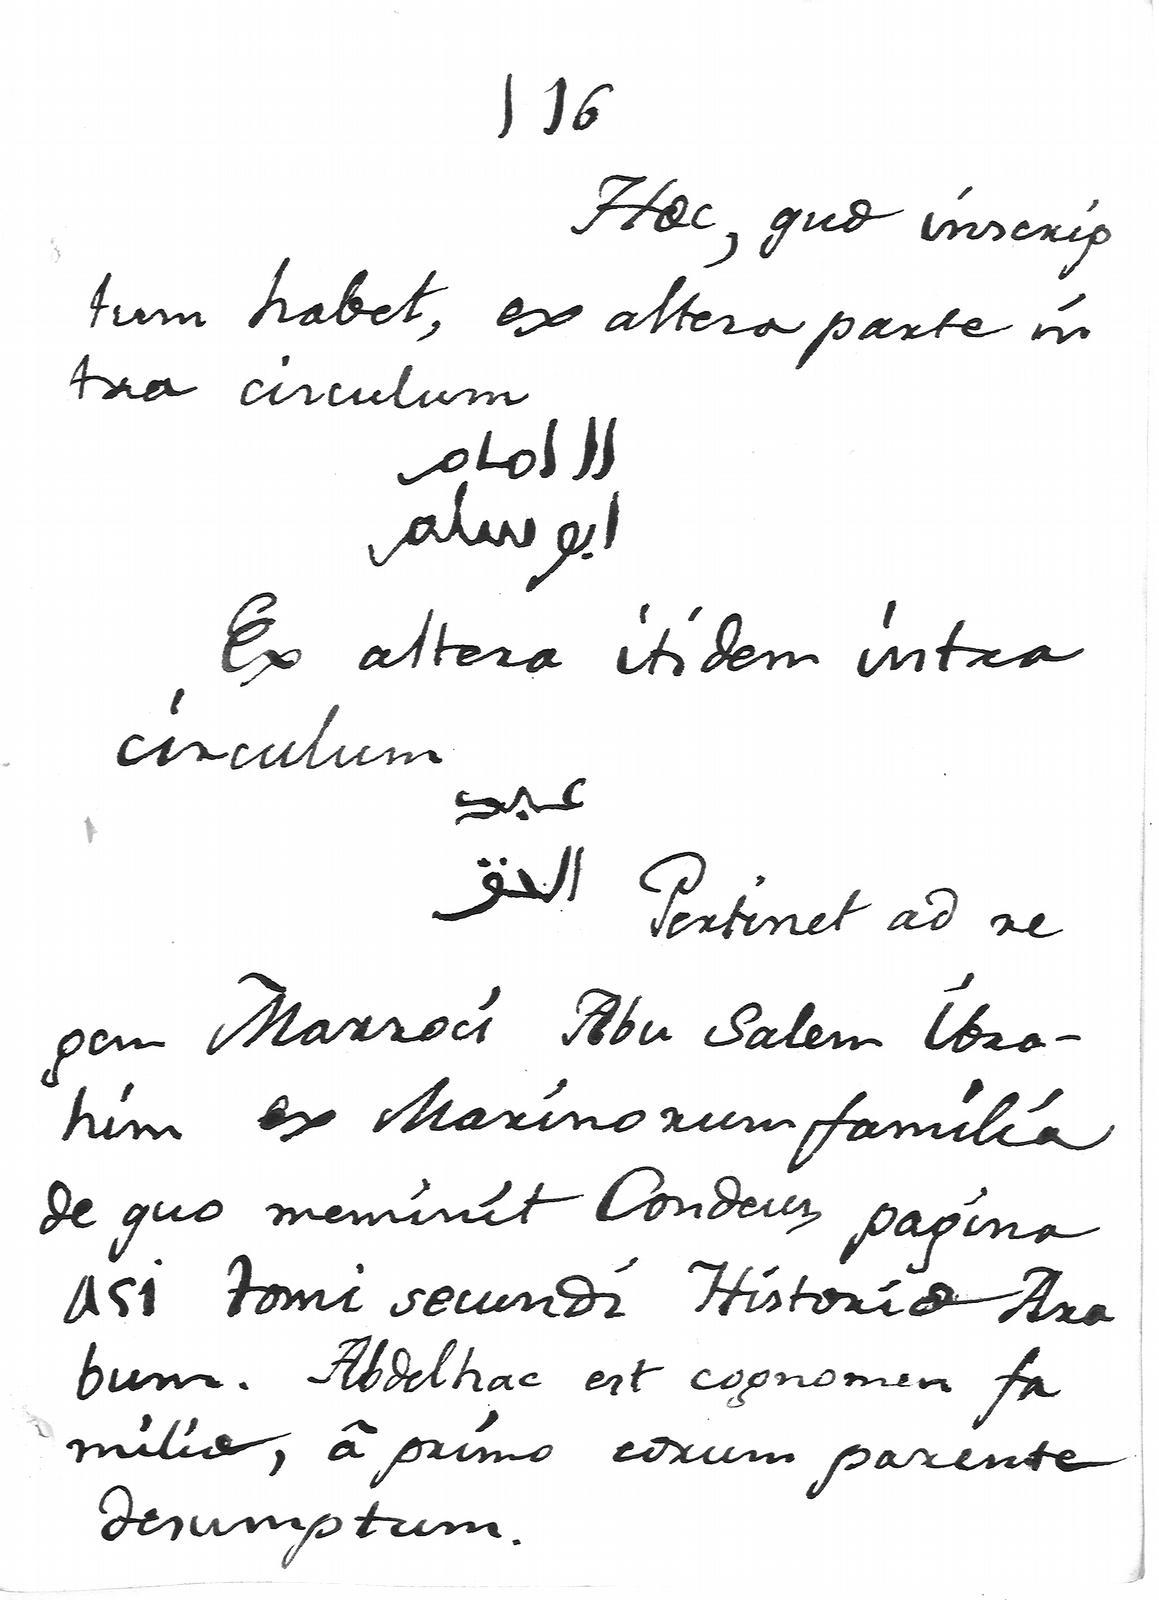 116
Hæc, quæ inscrip
tum habet, ex altera parte in
tra circulum
الامام
ابو سالم
Ex altera itidem intra
circulum
عبد
الحق
Pertinet ad re
gem Marroci Abu Salem Ibra-
him ex Marinorum familia
de quo meminit Condeus pagina
tomi secundi Historiæ Ara
bum. Abdelhac est cognomen fa
miliæ, â primo eorum parente
desumptum.